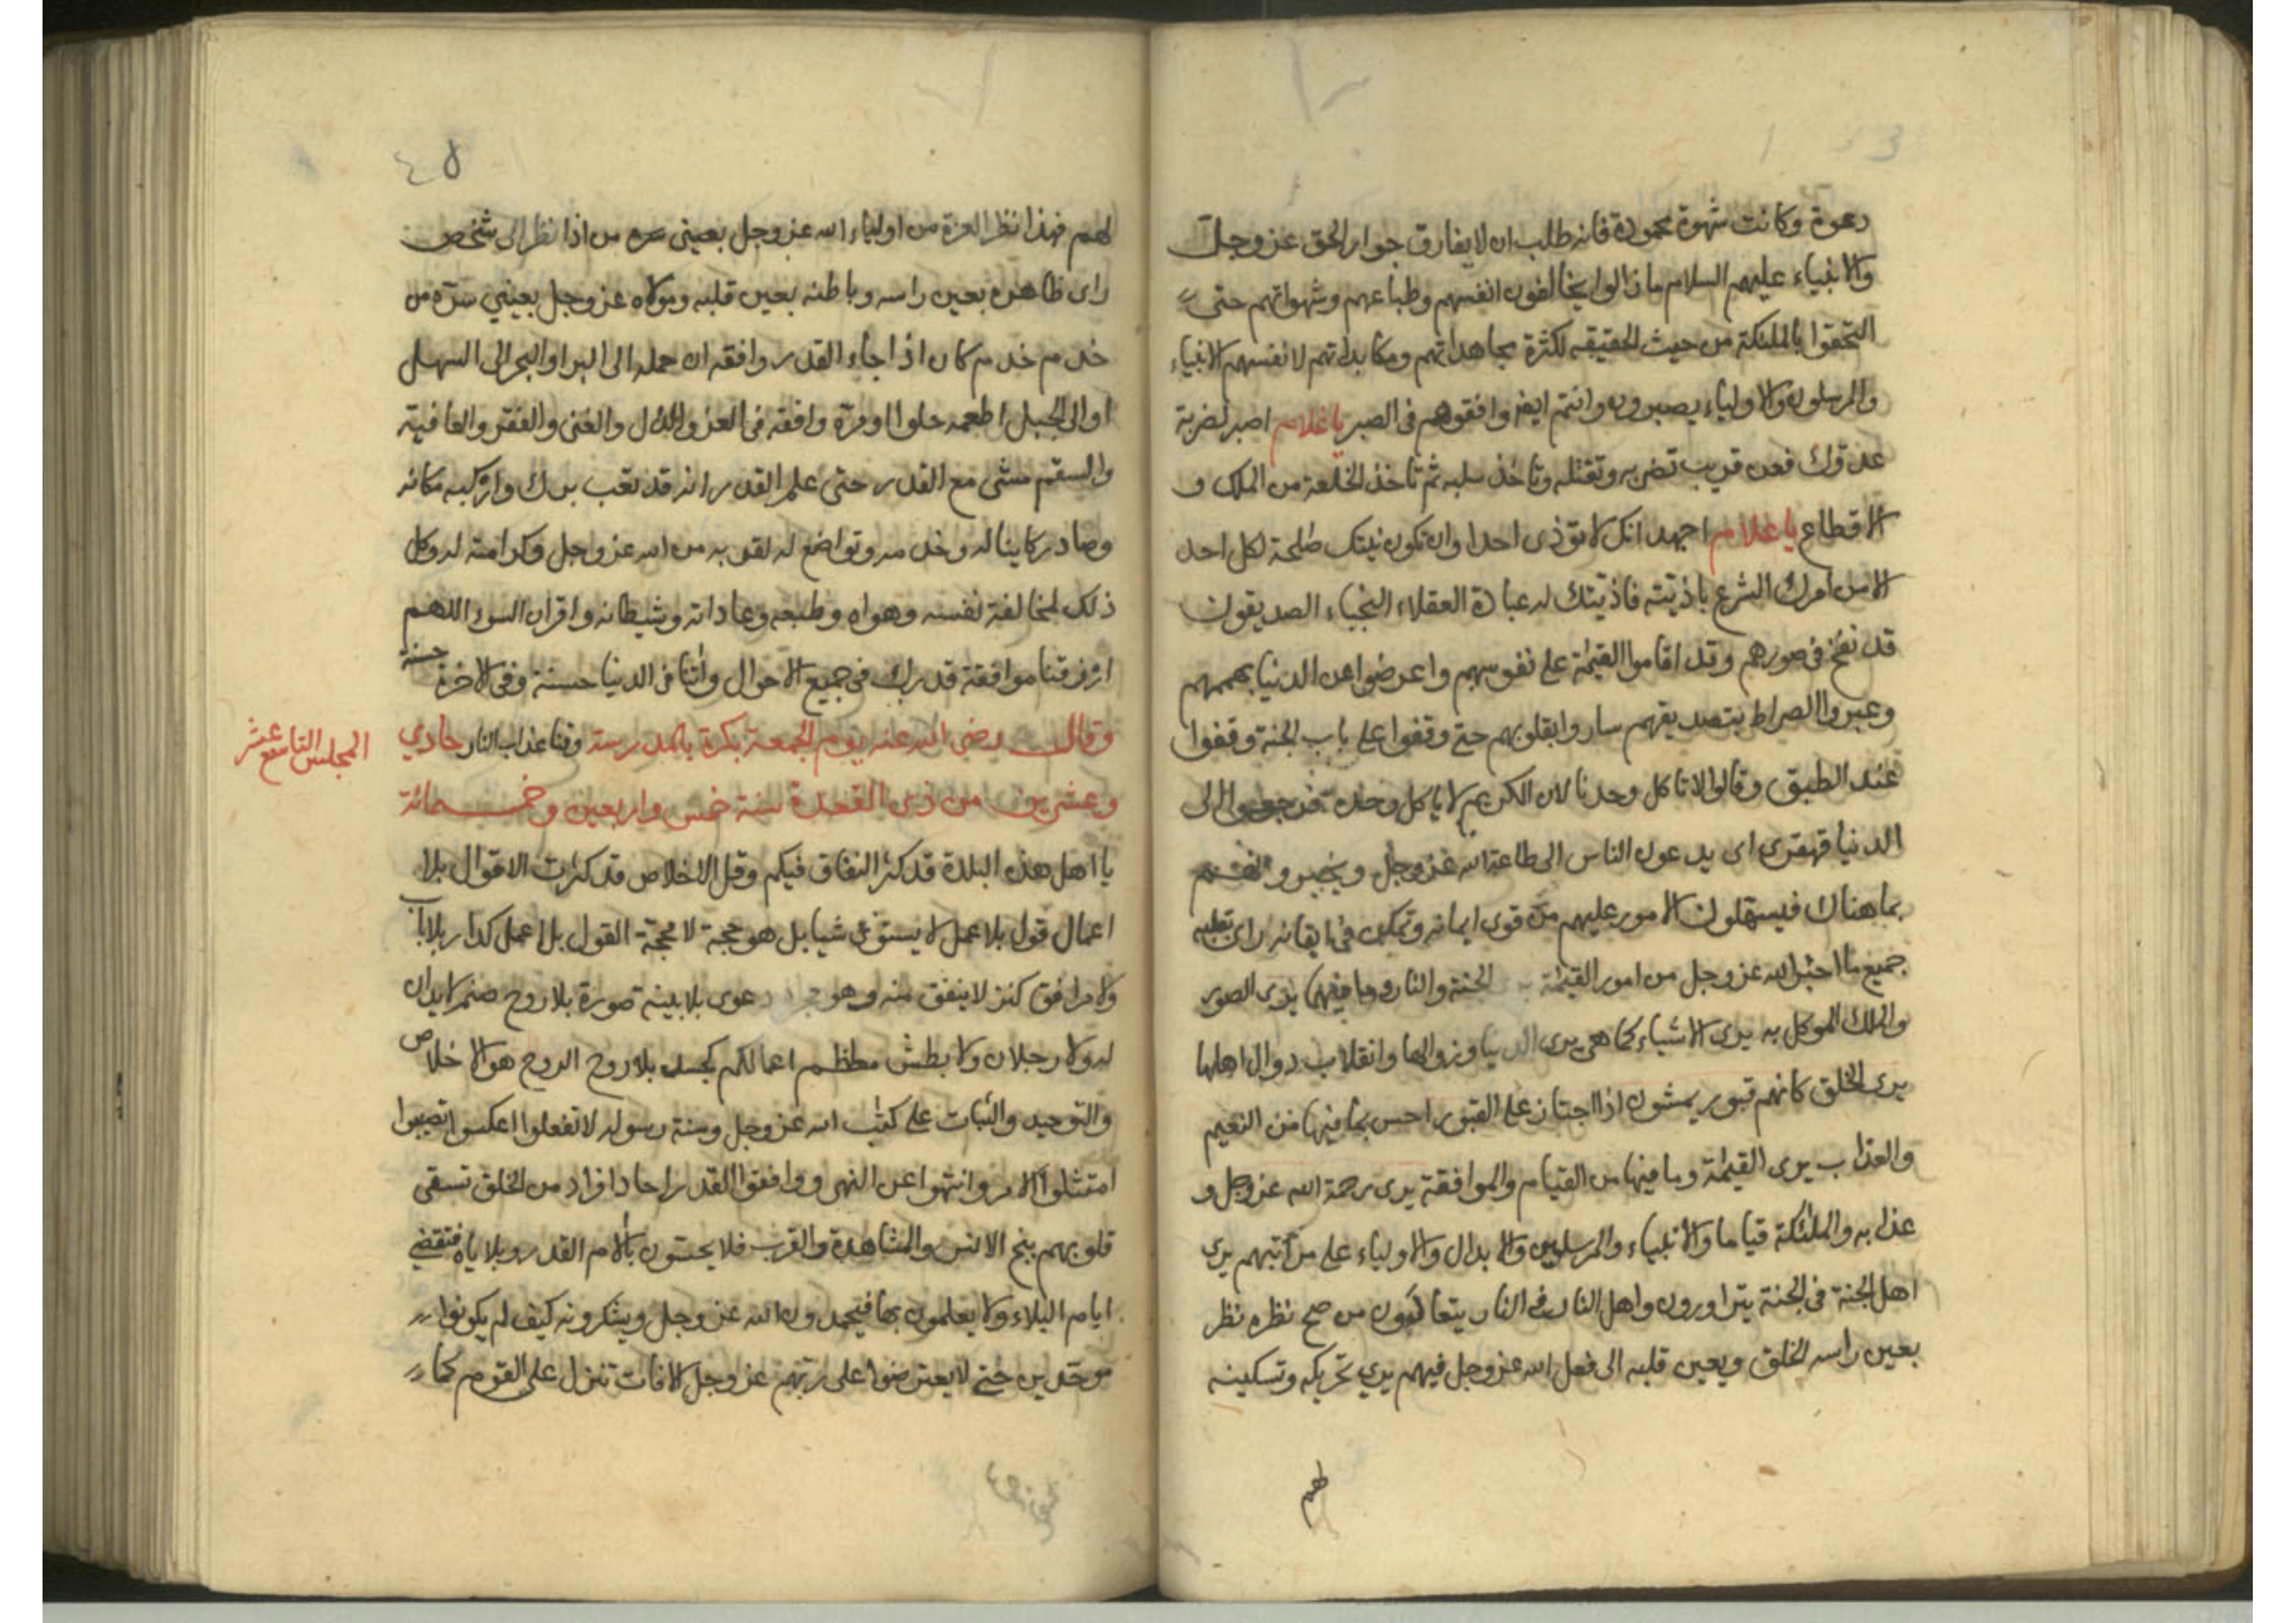 دعوة وكانت شهوة محمودة فانه طلب ان لا يفارق جوار الحق عز وجل
والانبياء عليهم السلام ما زالوا يخالفون انفسهم وطباعهم وشهواتهم حتى
التحقوا بالملئكة من حيث الحقيقه لكثرة مجاهداتهم ومكابداتهم لانفسهم الانبياء
والمرسلون والاولياء يصبرون وانتم ايضا وافقوهم فى الصبر يا غلام اصبر لضربة
عدوك فعن قريب تضربه وتقتله وتاخذ سلبه ثم تاخذ الخلعة من الملك و
الاقطاع يا غلام اجهد انك لا تؤذى احدا وان تكون نيتك صالحة لكل احد
الا من امرك الشرع باذيته فاذيتك له عبادة العقلاء النجباء الصديقون
قد نفخ فى صورهم وقد اقاموا القيمة على نفوسهم واعرضوا عن الدنيا بهممهم
وعبروا الصراط بتصديقهم ساروا بقلوبهم حتى وقفوا على باب الجنة وقفوا
عند الطبق وقالوا لا ناكل وحدنا لان الكريم لا ياكل وحده فرجعوا الى
الدنيا قهقرى اى يدعون الناس الى طاعة الله عز وجل ويخبرونهم
بما هناك فيسهلون الامور عليهم من قوى ايمانه وتمكن فى ايقانه راى بقلبه
جميع ما اخبر الله عز وجل من امور القيمة الجنة والنار وما فيهما يرى الصور
والملك الموكل به يرى الاشياء كما هى يرى الدنيا وزوالها وانقلاب دوال اهلها
يرى الخلق كانهم قبور يمشون اذا اجتاز على القبور احس بما فيها من النعيم
والعذاب يرى القيمة وما فيها من القيام والموافقة يرى رحمة الله عز وجل و
عذابه والملئكة قياما والانبياء والمرسلين والابدال والاولياء على مراتبهم يرى
اهل الجنة فى الجنة يتزاورون واهل النار فى النار يتعاوون من صح نظره نظر
بعين راسه الخلق وبعين قلبه الى فعل الله عز وجل فيهم يرى تحريكه وتسكينه
لهم
لهم فهذا نظر العزة من اولياء الله عز وجل بعينى سره من اذا نظر الى شخص
راى ظاهره بعين راسه وباطنه بعين قلبه ومولاه عز وجل بعينى سره من
خدم خدم كان اذا جاء القدر وافقه ان حمله الى البر او البحر الى السهل
او الى الجبل اطعمه حلوا او مرة وافقه فى العز والذل والغنى والفقر والعافية
والسقم مشى مع القدر حتى علم القدر انه قد تعب برك واركبه مكانه
وصار ركابيا له وخدمه وتواضع له لقربه من الله عز وجل وكرامته له وكل
ذلك لمخالفة نفسه وهواه وطبعه وعاداته وشيطانه واقران السوء اللهم
ارزقنا موافقة قدرك فى جميع الاحوال واتنا فى الدنيا حسنة وفى الاخرة حسنة
وقال رضى الله عنه يوم الجمعة بكرة بالمدرسة وقنا عذاب النار حادي
المجلس التاسع عشر
وعشرين من ذى القعدة سنة خمس واربعين وخمسمائة
يا اهل هذه البلدة قد كثر النفاق فيكم وقل الاخلاص قد كثرت الاقوال بلا
اعمال قول بلا عمل لا يستوى شيا بل هو حجة لا محجة القول بلا عمل كدار بلا باب
ولا مرافق كنز لا ينفق منه وهو مجرد دعوى بلا بينة صورة بلا روح صنم لا يدان
له ولا رجلان ولا بطش معظم اعمالكم كجسد بلا روح الروح هو الاخلاص
والتوحيد والثبات على كتب الله عز وجل وسنة رسوله لا تفعلوا اعكسوا تصيبوا
امتثلوا الامر وانتهوا عن النهى ووافقوا القدر احاد افراد من الخلق تسقى
قلوبهم بنج الانس والمشاهدة والقرب فلا يحسون بالام القدر وبلاياه فتقضي
ايام البلاء ولا يعلمون بها فيحمدون الله عز وجل ويشكرونه كيف لم يكونوا
موحدين حتى لا يعترضوا على ربهم عز وجل الافات تنزل على القوم كما